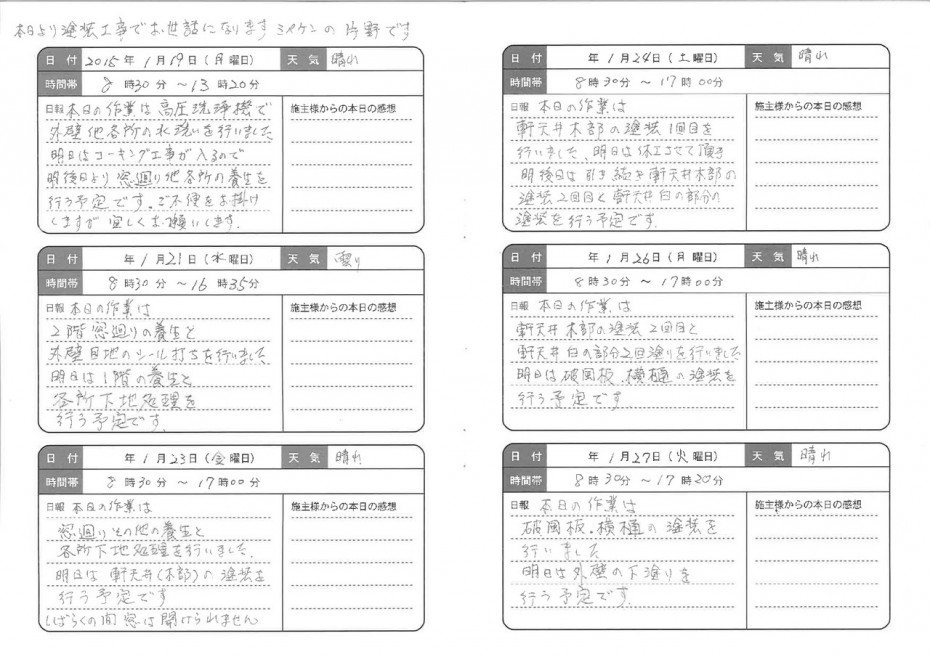 本日より塗装工事でお世話になります ミヤケンの片野です
日付 2015年1月19日(月曜日) 天気 晴れ
時間帯 8時30分～13時20分
日報 本日の作業は高圧洗浄機で
外壁他各所の水洗いを行いました
明日はコーキング工事が入るので
明後日より窓廻り他各所の養生を
行う予定です。ご不便をお掛け
しますが宜しくお願いします。
施主様からの本日の感想
日付 年1月21日(水曜日) 天気 曇り
時間帯 8時30分～16時35分
日報 本日の作業は
2階窓廻りの養生と
外壁目地のシール打ちを行いました
明日は1階の養生と
各所下地処理を
行う予定です。
施主様からの本日の感想
日付 年1月23日(金曜日) 天気 晴れ
時間帯 8時30分～17時00分
日報 本日の作業は
窓廻りその他の養生と
各所下地処理を行いました.
明日は軒天井(木部)の塗装を
行う予定です
しばらくの間窓は開けられません
施主様からの本日の感想
日付 年1月24日(土曜日) 天気 晴れ
時間帯 8時30分～17時00分
日報 本日の作業は
軒天井木部の塗装1回目を
行いました、明日は休工させて頂き
明後日は引き続き軒天井木部の
塗装2回目と軒天井白の部分の
塗装を行う予定です.
施主様からの本日の感想
日付 年1月26日(月曜日) 天気 晴れ
時間帯 8時30分～17時00分
日報 本日の作業は
軒天井木部の塗装2回目と
軒天井白の部分2回塗りを行いました
明日は破風板.横樋の塗装を
行う予定です
施主様からの本日の感想
日付 年1月27日(火曜日) 天気 晴れ
時間帯 8時30分～17時20分
日報 本日の作業は
破風板.横樋の塗装を
行いました
明日は外壁の下塗りを
行う予定です.
施主様からの本日の感想